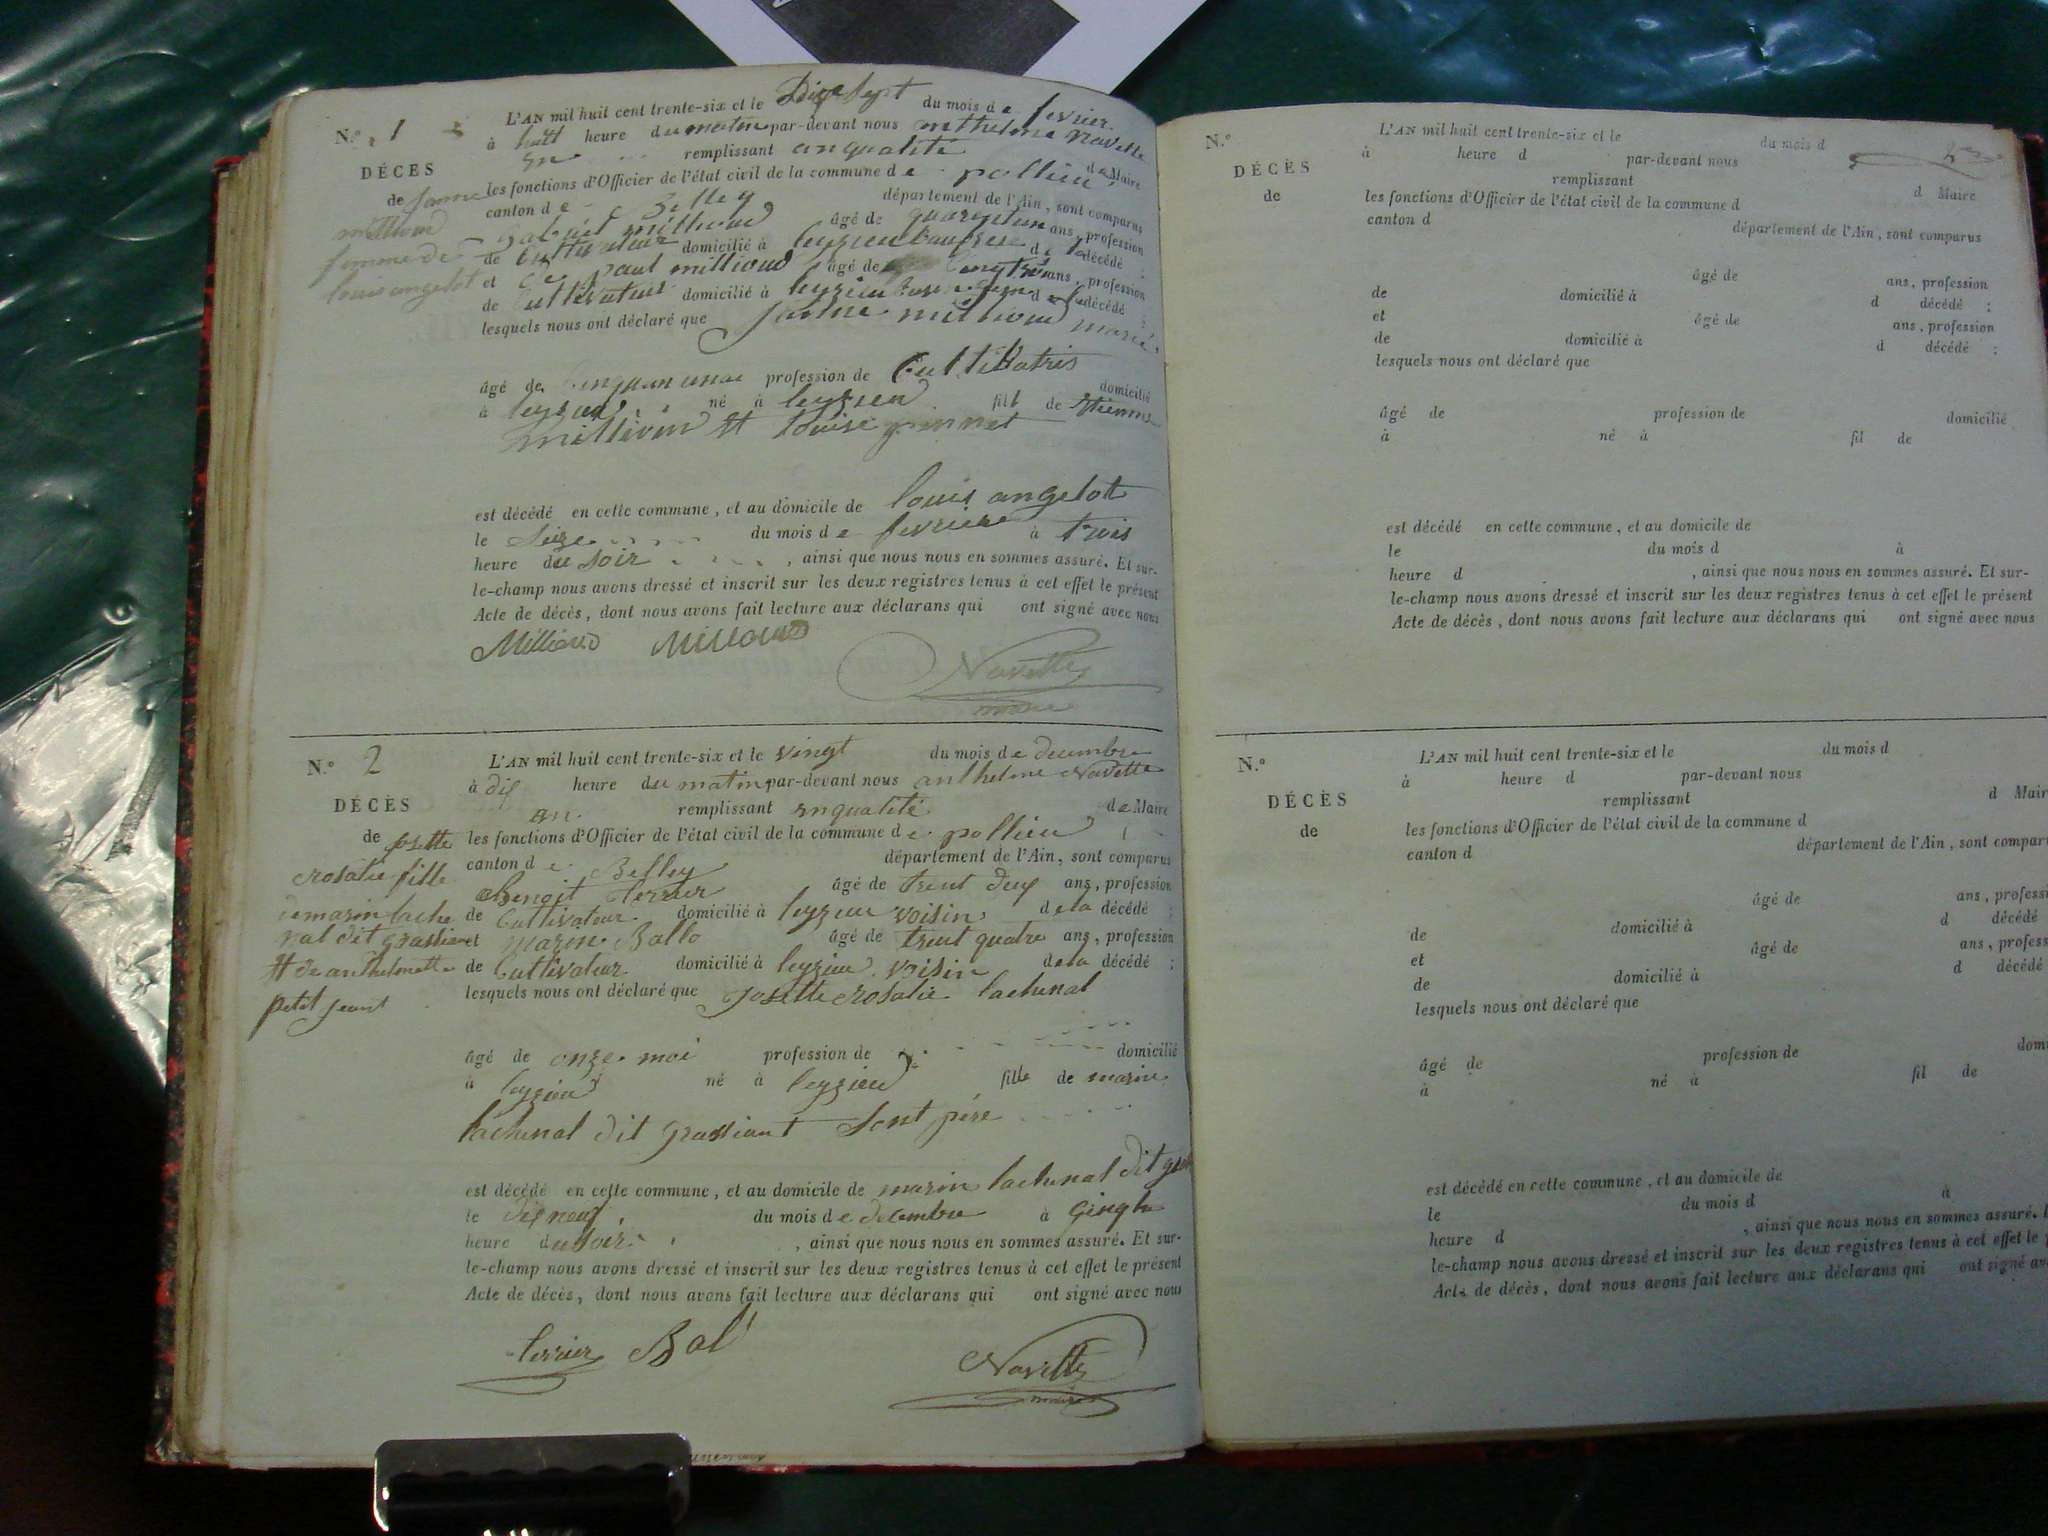 N.º 1
DÉCÈS
de
millioud
femme de
louis angelot
L'AN mil huit cent trente-six et le Dix sept du mois de fevrier
à huit heure du matin par-devant nous anthelme Navette
en remplissant anqualité de Maire
les fonctions d'Officier de l'état civil de la commune de pollieu
canton de département de l'Ain, sont comparus
millioud âgé de ans, profession
de Cultivateur domicilié à leyzieu de la décédé ;
et paul millioud âgé de ans, profession
de Cultivateur domicilié à leyzieu de la décédé ;
lesquels nous ont déclaré que millioud
âgé de profession de Cultivatris domicilié
à leyzieu né à leyzieu fill de Etienne
millioud et Louise
est décédé en cette commune, et au domicile de louis angelot
le Seize du mois de fevrier à trois
heure du Soir , ainsi que nous nous en sommes assuré. Et sur-
le-champ nous avons dressé et inscrit sur les deux registres tenus à cet effet le présent
Acte de décès, dont nous avons fait lecture aux déclarans qui ont signé avec nous
Millioud Millioud
Navette
maire
N.º 2
DÉCÈS
de josette
rosalie fille
de marin lache
nal dit grassiant
et de anthelmette
petit jeant
L'AN mil huit cent trente-six et le vingt du mois de decembre
à dix heure du matin par-devant nous anthelme Navette
an remplissant enqualité de Maire
les fonctions d'Officier de l'état civil de la commune de pollieu
canton de Belley département de l'Ain, sont comparus
Benoit Terrier âgé de trent deux ans, profession
de Cultivateur domicilié à leyzieu voisin de la décédé ;
et marin Ballo âgé de trent quatre ans, profession
de Cultivateur domicilié à leyzieu voisin de la décédé ;
lesquels nous ont déclaré que Josette rosalie lachenal
âgé de onze moi profession de domicilié
à leyzieu né à leyzieu fille de marin
lachenal dit grassiant Sont père
est décédé en cette commune, et au domicile de marin lachenal dit
le dix neuf du mois de decembre à
heure du Soir , ainsi que nous nous en sommes assuré. Et sur-
le-champ nous avons dressé et inscrit sur les deux registres tenus à cet effet le présent
Acte de décès, dont nous avons fait lecture aux déclarans qui ont signé avec nous
Terrier Bal
Navette
maire
N.º
DÉCÈS
de
L'AN mil huit cent trente-six et le du mois d
à heure d par-devant nous
remplissant d Maire
les fonctions d'Officier de l'état civil de la commune d
canton d département de l'Ain, sont comparus
âgé de ans, profession
de domicilié à d décédé ;
et âgé de ans, profession
de domicilié à d décédé ;
lesquels nous ont déclaré que
âgé de profession de domicilié
à né à fil de
est décédé en cette commune, et au domicile de
le du mois d à
heure d , ainsi que nous nous en sommes assuré. Et sur-
le-champ nous avons dressé et inscrit sur les deux registres tenus à cet effet le présent
Acte de décès, dont nous avons fait lecture aux déclarans qui ont signé avec nous
N.º
DÉCÈS
de
L'AN mil huit cent trente-six et le du mois d
à heure d par-devant nous
remplissant d Mair
les fonctions d'Officier de l'état civil de la commune d
canton d département de l'Ain, sont compar
âgé de ans, profess
de domicilié à d décédé
et âgé de ans, profess
de domicilié à d décédé
lesquels nous ont déclaré que
âgé de profession de dom
à né à fil de
est décédé en cette commune, et au domicile de
le du mois d à
heure d , ainsi que nous nous en sommes assuré.
le-champ nous avons dressé et inscrit sur les deux registres tenus à cet effet le
Acte de décès, dont nous avons fait lecture aux déclarans qui ont signé